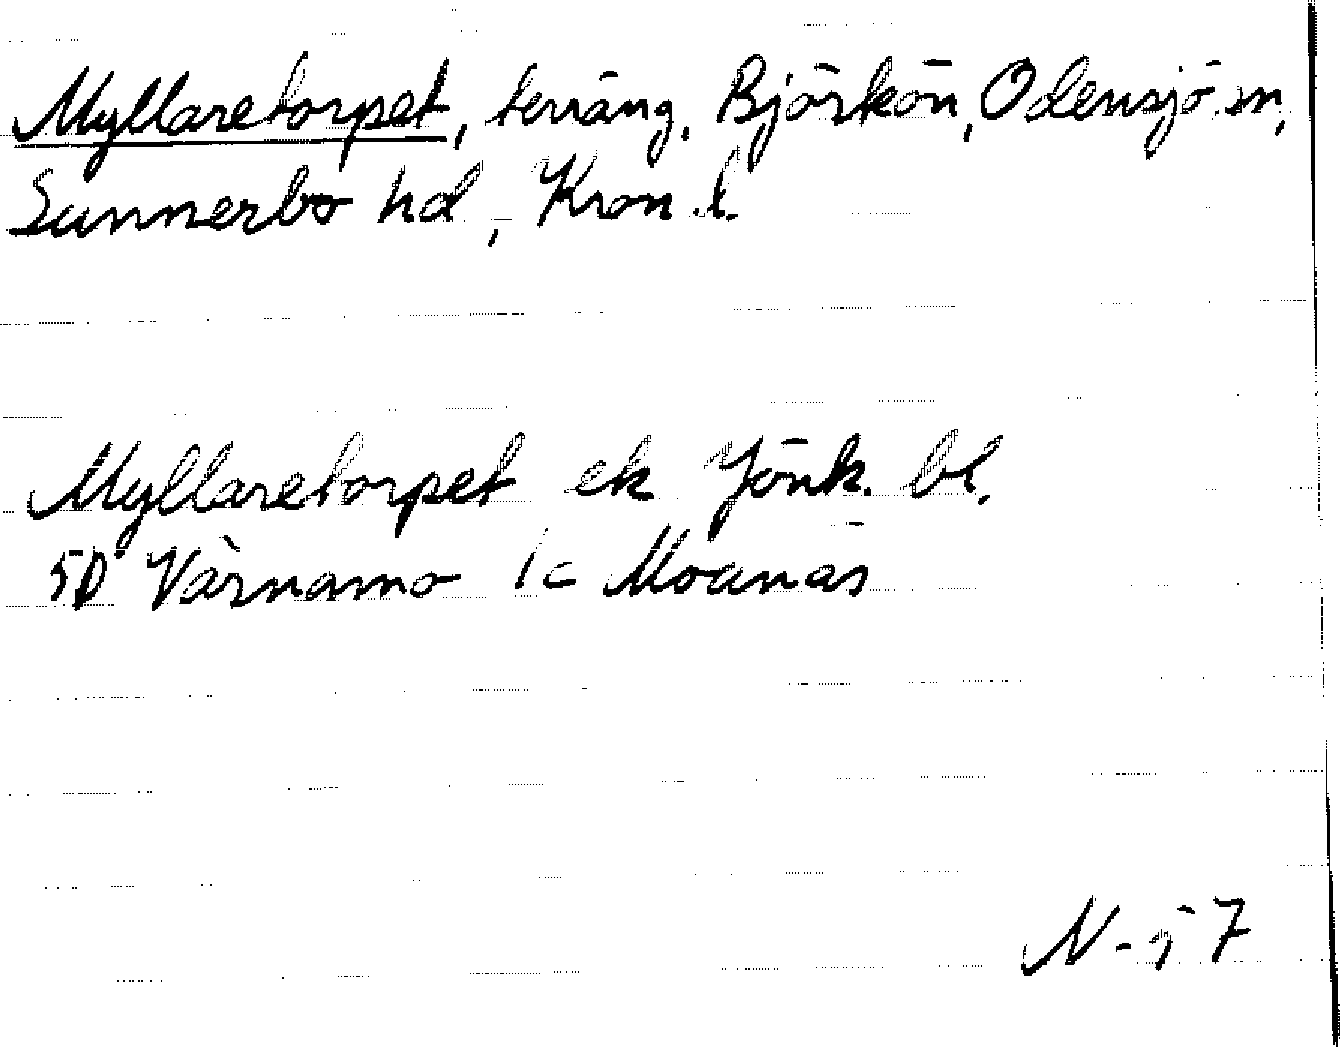 Myllaretorpet, terräng, Björkön, Odensjö sn,
Sunnerbo hd, Kron. l.
Myllaretorpet ek Jönk. bl.
5D Värnamo 1c Moanäs
N-j 7